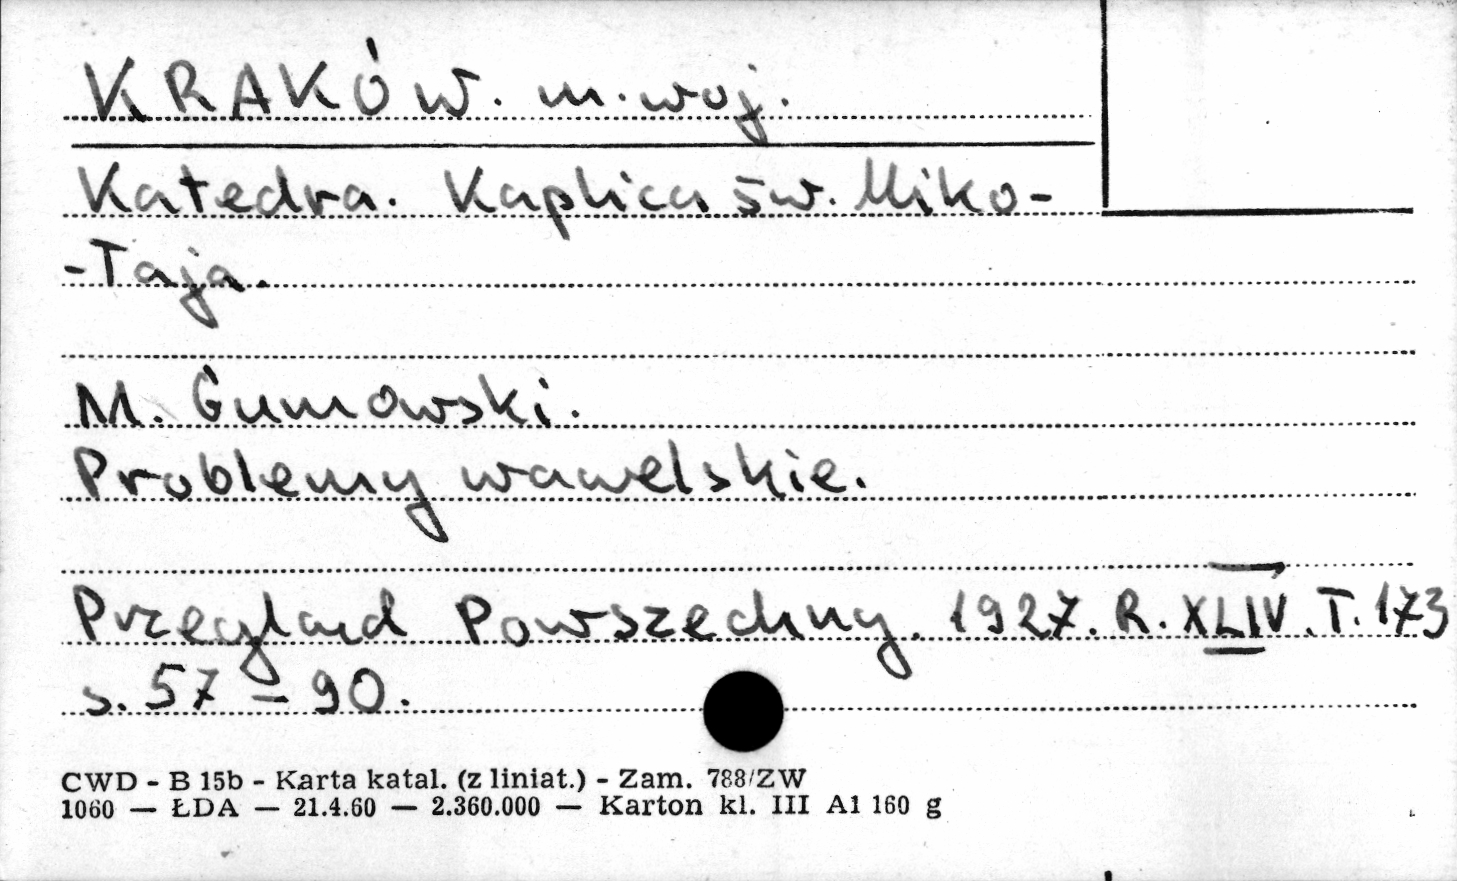 KRAKÓW. m. woj.
Katedra. Kaplica św. Miko-
-Taja.
M. Gumowski.
Problemy wawelskie.
Przegląd Powszechny. 1927. R. XLIV. T. 173
s. 57 - 90.
CWD - B 15b - Karta katal. (z liniat.) - Zam. 788/ZW
1060 — ŁDA — 21.4.60 — 2.360.000 — Karton kl. III A1 160 g